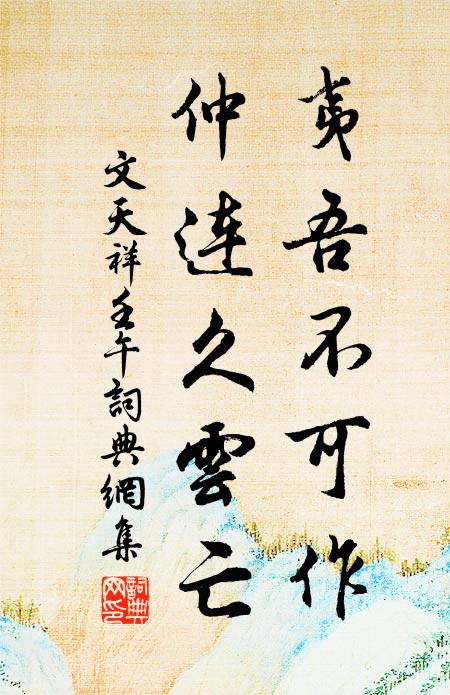 夷吾不可作
仲連久雲亡
文天祥壬午詞典網集
詞典
网印